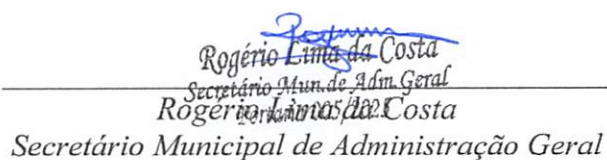 Rogério Lima da Costa
Secretário Mun. de Adm. Geral
Rogério Lima da Costa
Secretário Municipal de Administração Geral